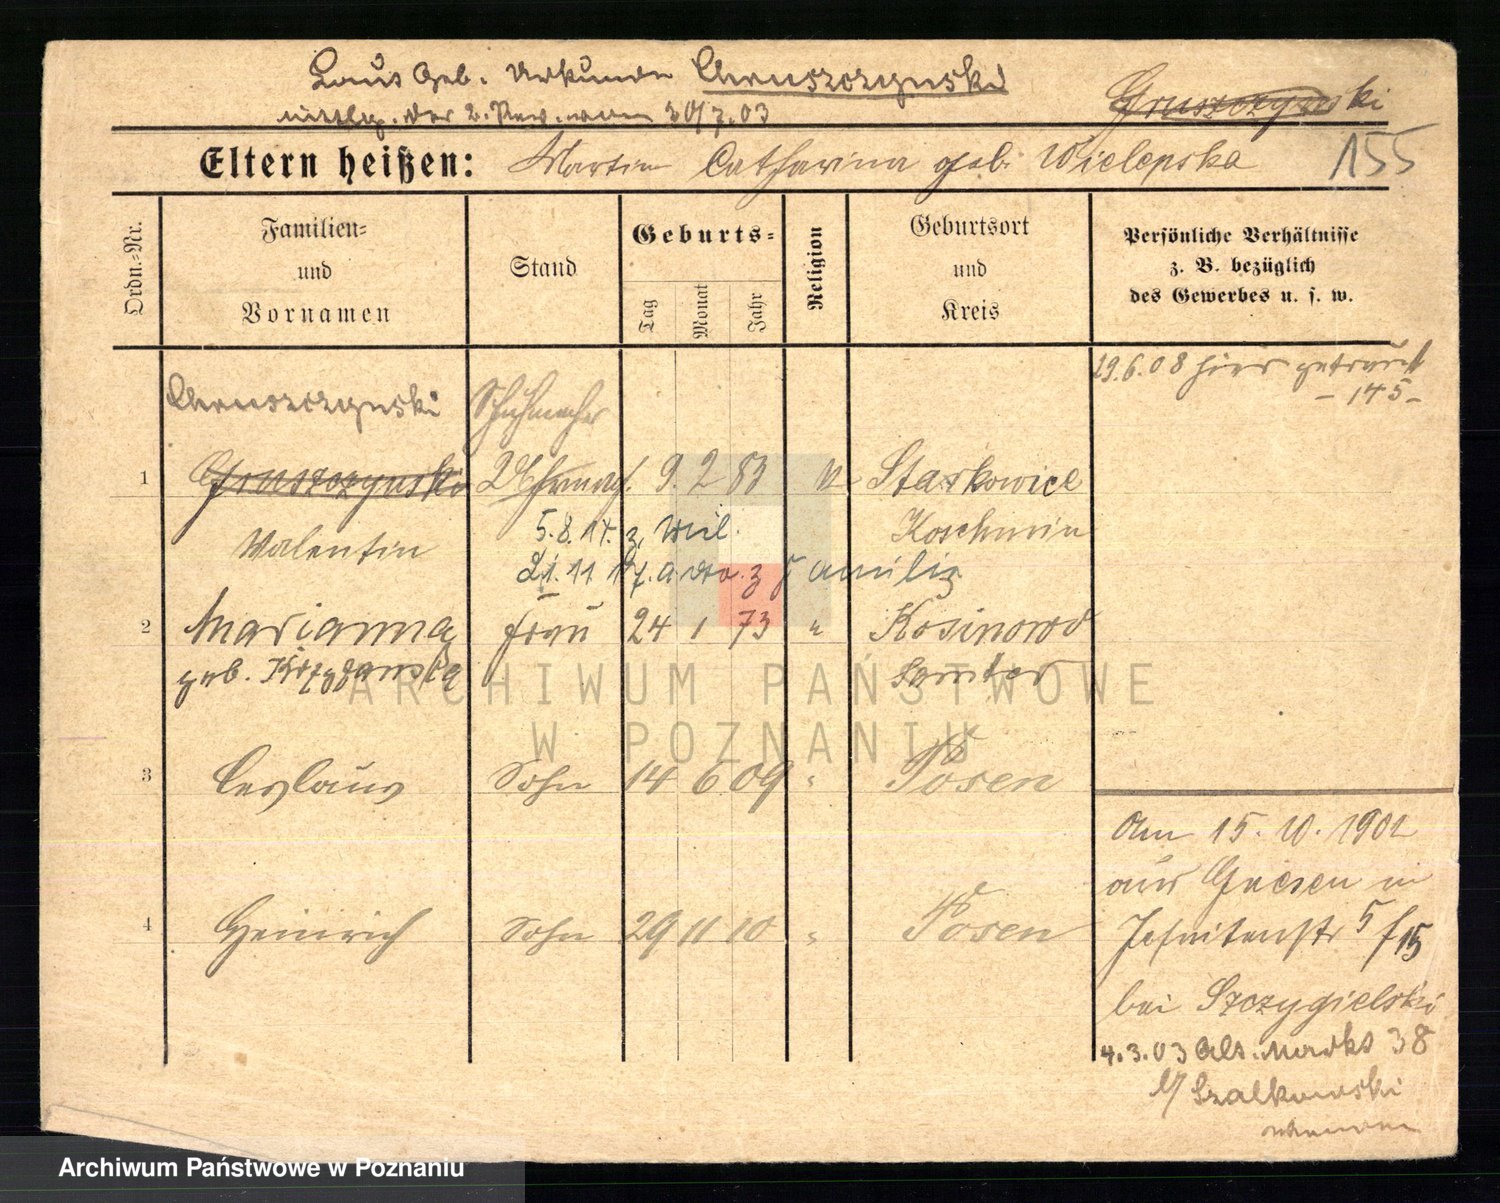 Laut Geb. Urkunde Chruszczynski
mittlg. der 2. Rev. vom 20/7.03
Gruszczynski
Eltern heißen: Martin Catharina geb. Wielepska
155
Ordn.-Nr.
Familien-
und
Vornamen
Stand
Geburts-
Tag
Monat
Jahr
Religion
Geburtsort
und
Kreis
Persönliche Verhältnisse
z. B. bezüglich
des Gewerbes u. s. w.
19.6.08 hier getraut
- 145 -
Chruszczynski Schuhmacher
1 Gruszczynski 9. 2 83 Staskowice
Valentin Koschmin
5.8.14. z. Mil.
21.11 17. a. z Familie
2 Marianna Frau 24 1 73 " Kosinowo
geb. Krzyzanska Samter
3 Ceslaus Sohn 14 6 09 " Posen
4 Heinrich Sohn 29 11 10 " Posen
Am 15. 10. 1902
aus Gnesen in
Jesuitenstr 5 f 15
bei Szczygielski
4.3.03 Alt. Markt 38
b/ Szalkowski
ARCHIWUM PAŃSTWOWE
W POZNANIU
Archiwum Państwowe w Poznaniu